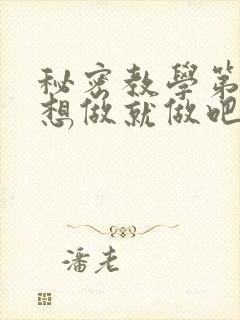 秘密教學第
想做就做吧
潘老